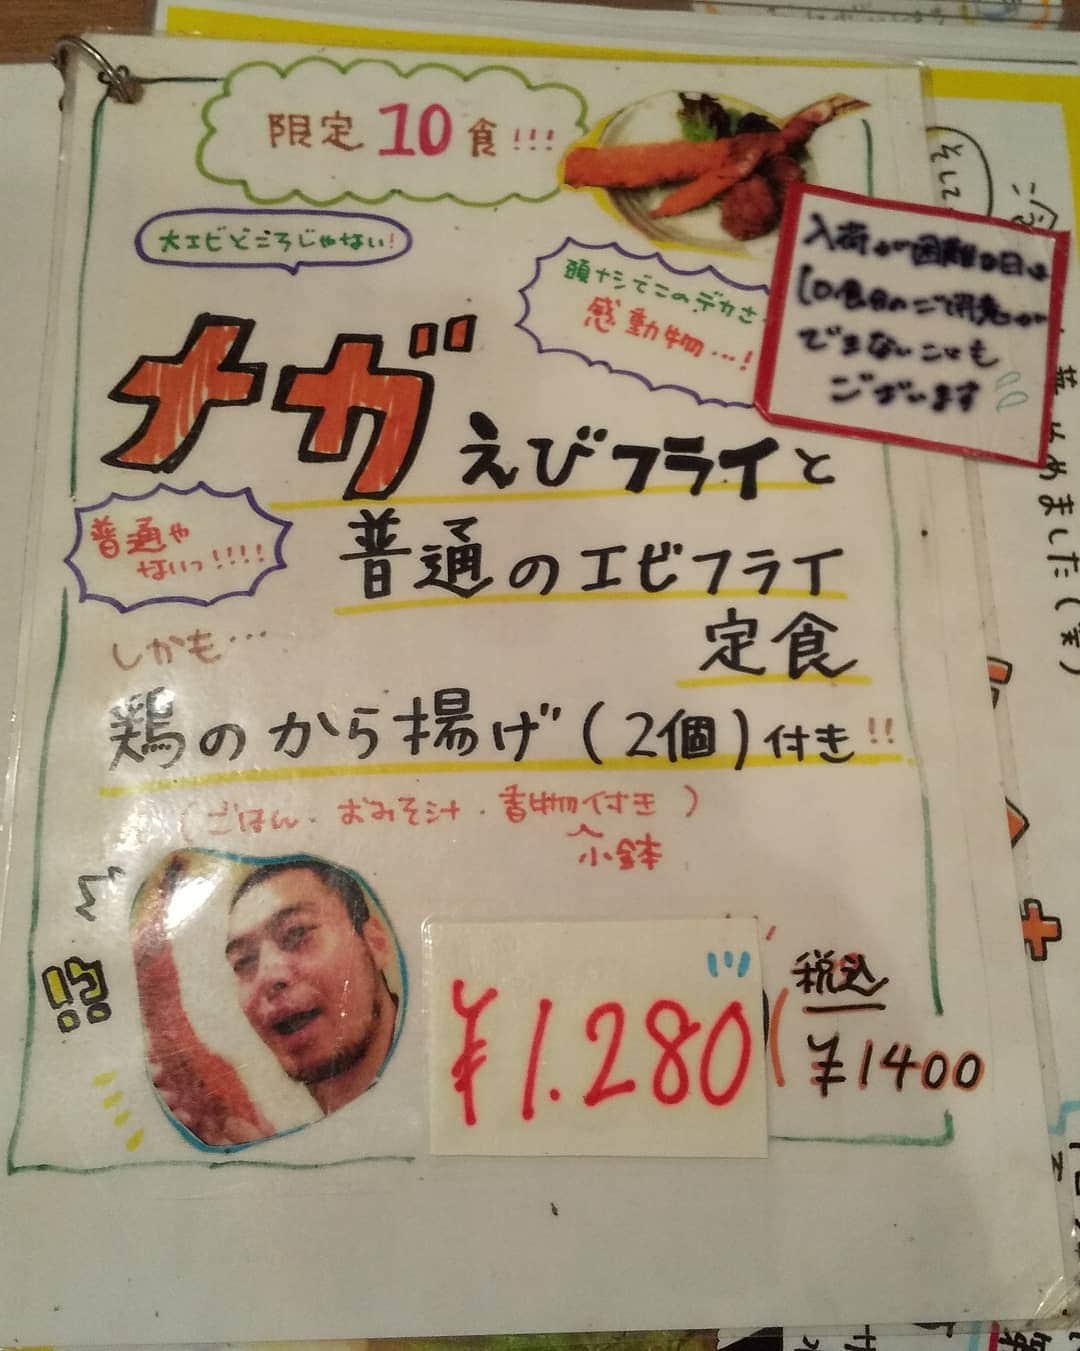 限定10食!!!
大エビどころじゃない!
頭ナシでこのデカさ
感動物…!
入荷が困難な日は
10食分のご用意が
できないことも
ございます
メガえびフライと
普通や
ないっ!!!!
普通のエビフライ
定食
しかも…
鶏のから揚げ(2個)付き!!
(ごはん・おみそ汁・香物付き)
小鉢
!?
¥1.280
(税込
¥1400
そして
めました(笑)